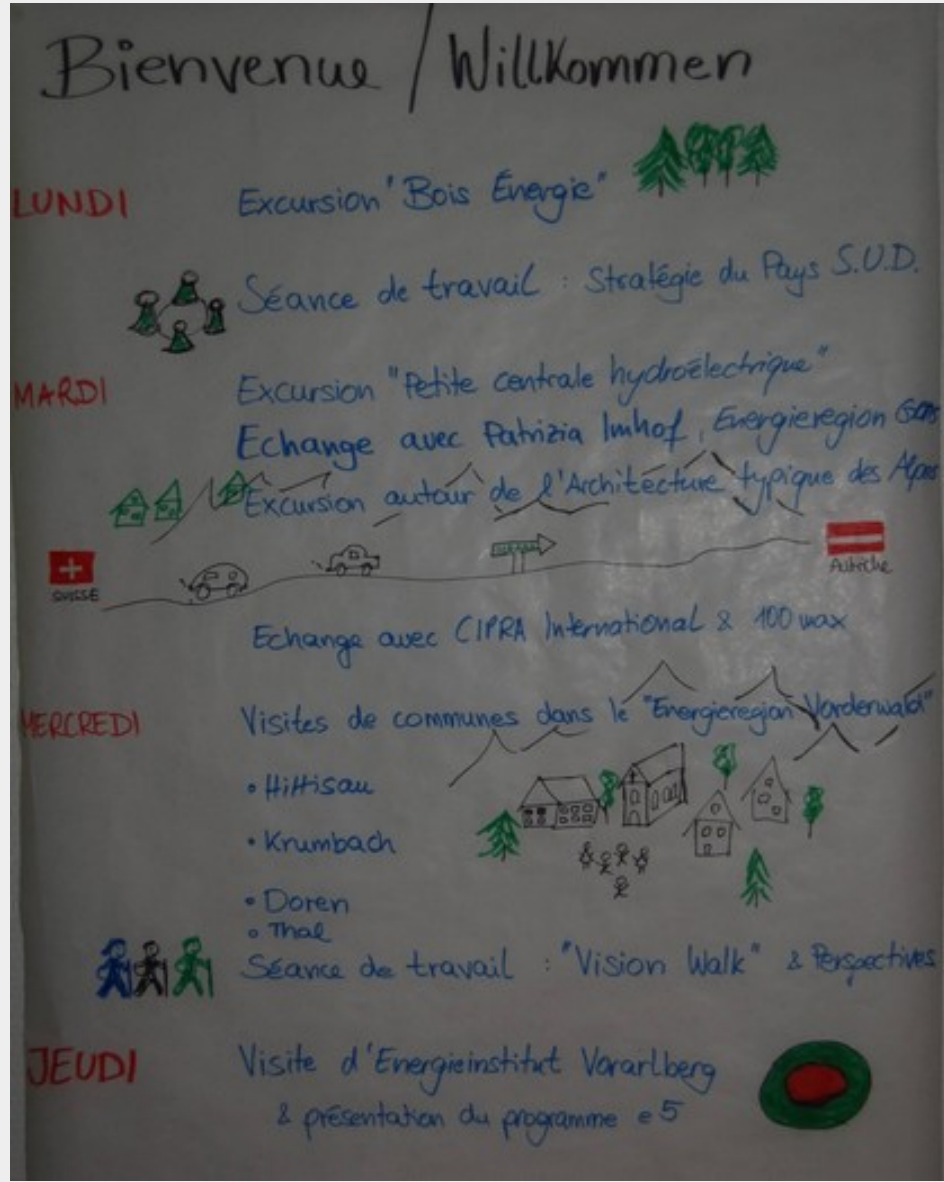 Bienvenue / Willkommen
LUNDI Excursion "Bois Énergie"
Séance de travail : Stratégie du Pays S.U.D.
MARDI Excursion "Petite centrale hydroélectrique"
Echange avec Patrizia Imhof, Energieregion Goms
Excursion autour de l'Architecture typique des Alpes
SUISSE
Autriche
Echange avec CIPRA International & 100 max
MERCREDI Visites de communes dans le "Energieregion Vorderwald"
• Hittisau
• Krumbach
• Doren
• Thal
Séance de travail : "Vision Walk" & Perspectives
JEUDI Visite d'Energieinstitut Vorarlberg
& présentation du programme e5